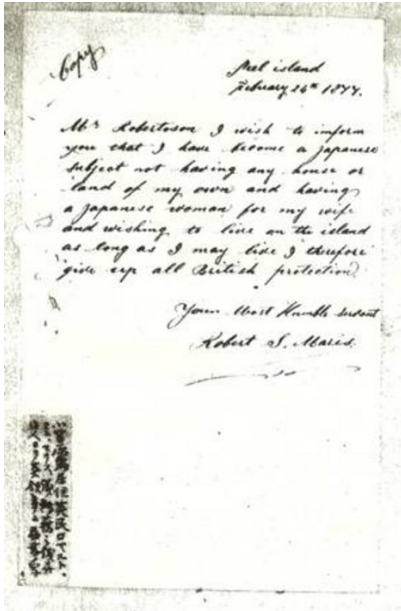 Copy
Peel island
February 26th 1877.
Mr Robertoson I wish to inform
you that I have become a japanese
subject not having any house or
land of my own and having
a japanese woman for my wife
and wishing to live on the island
as long as I may live I therefore
give up all British protection.
Your Most Humble servant
Robert S. Maris.